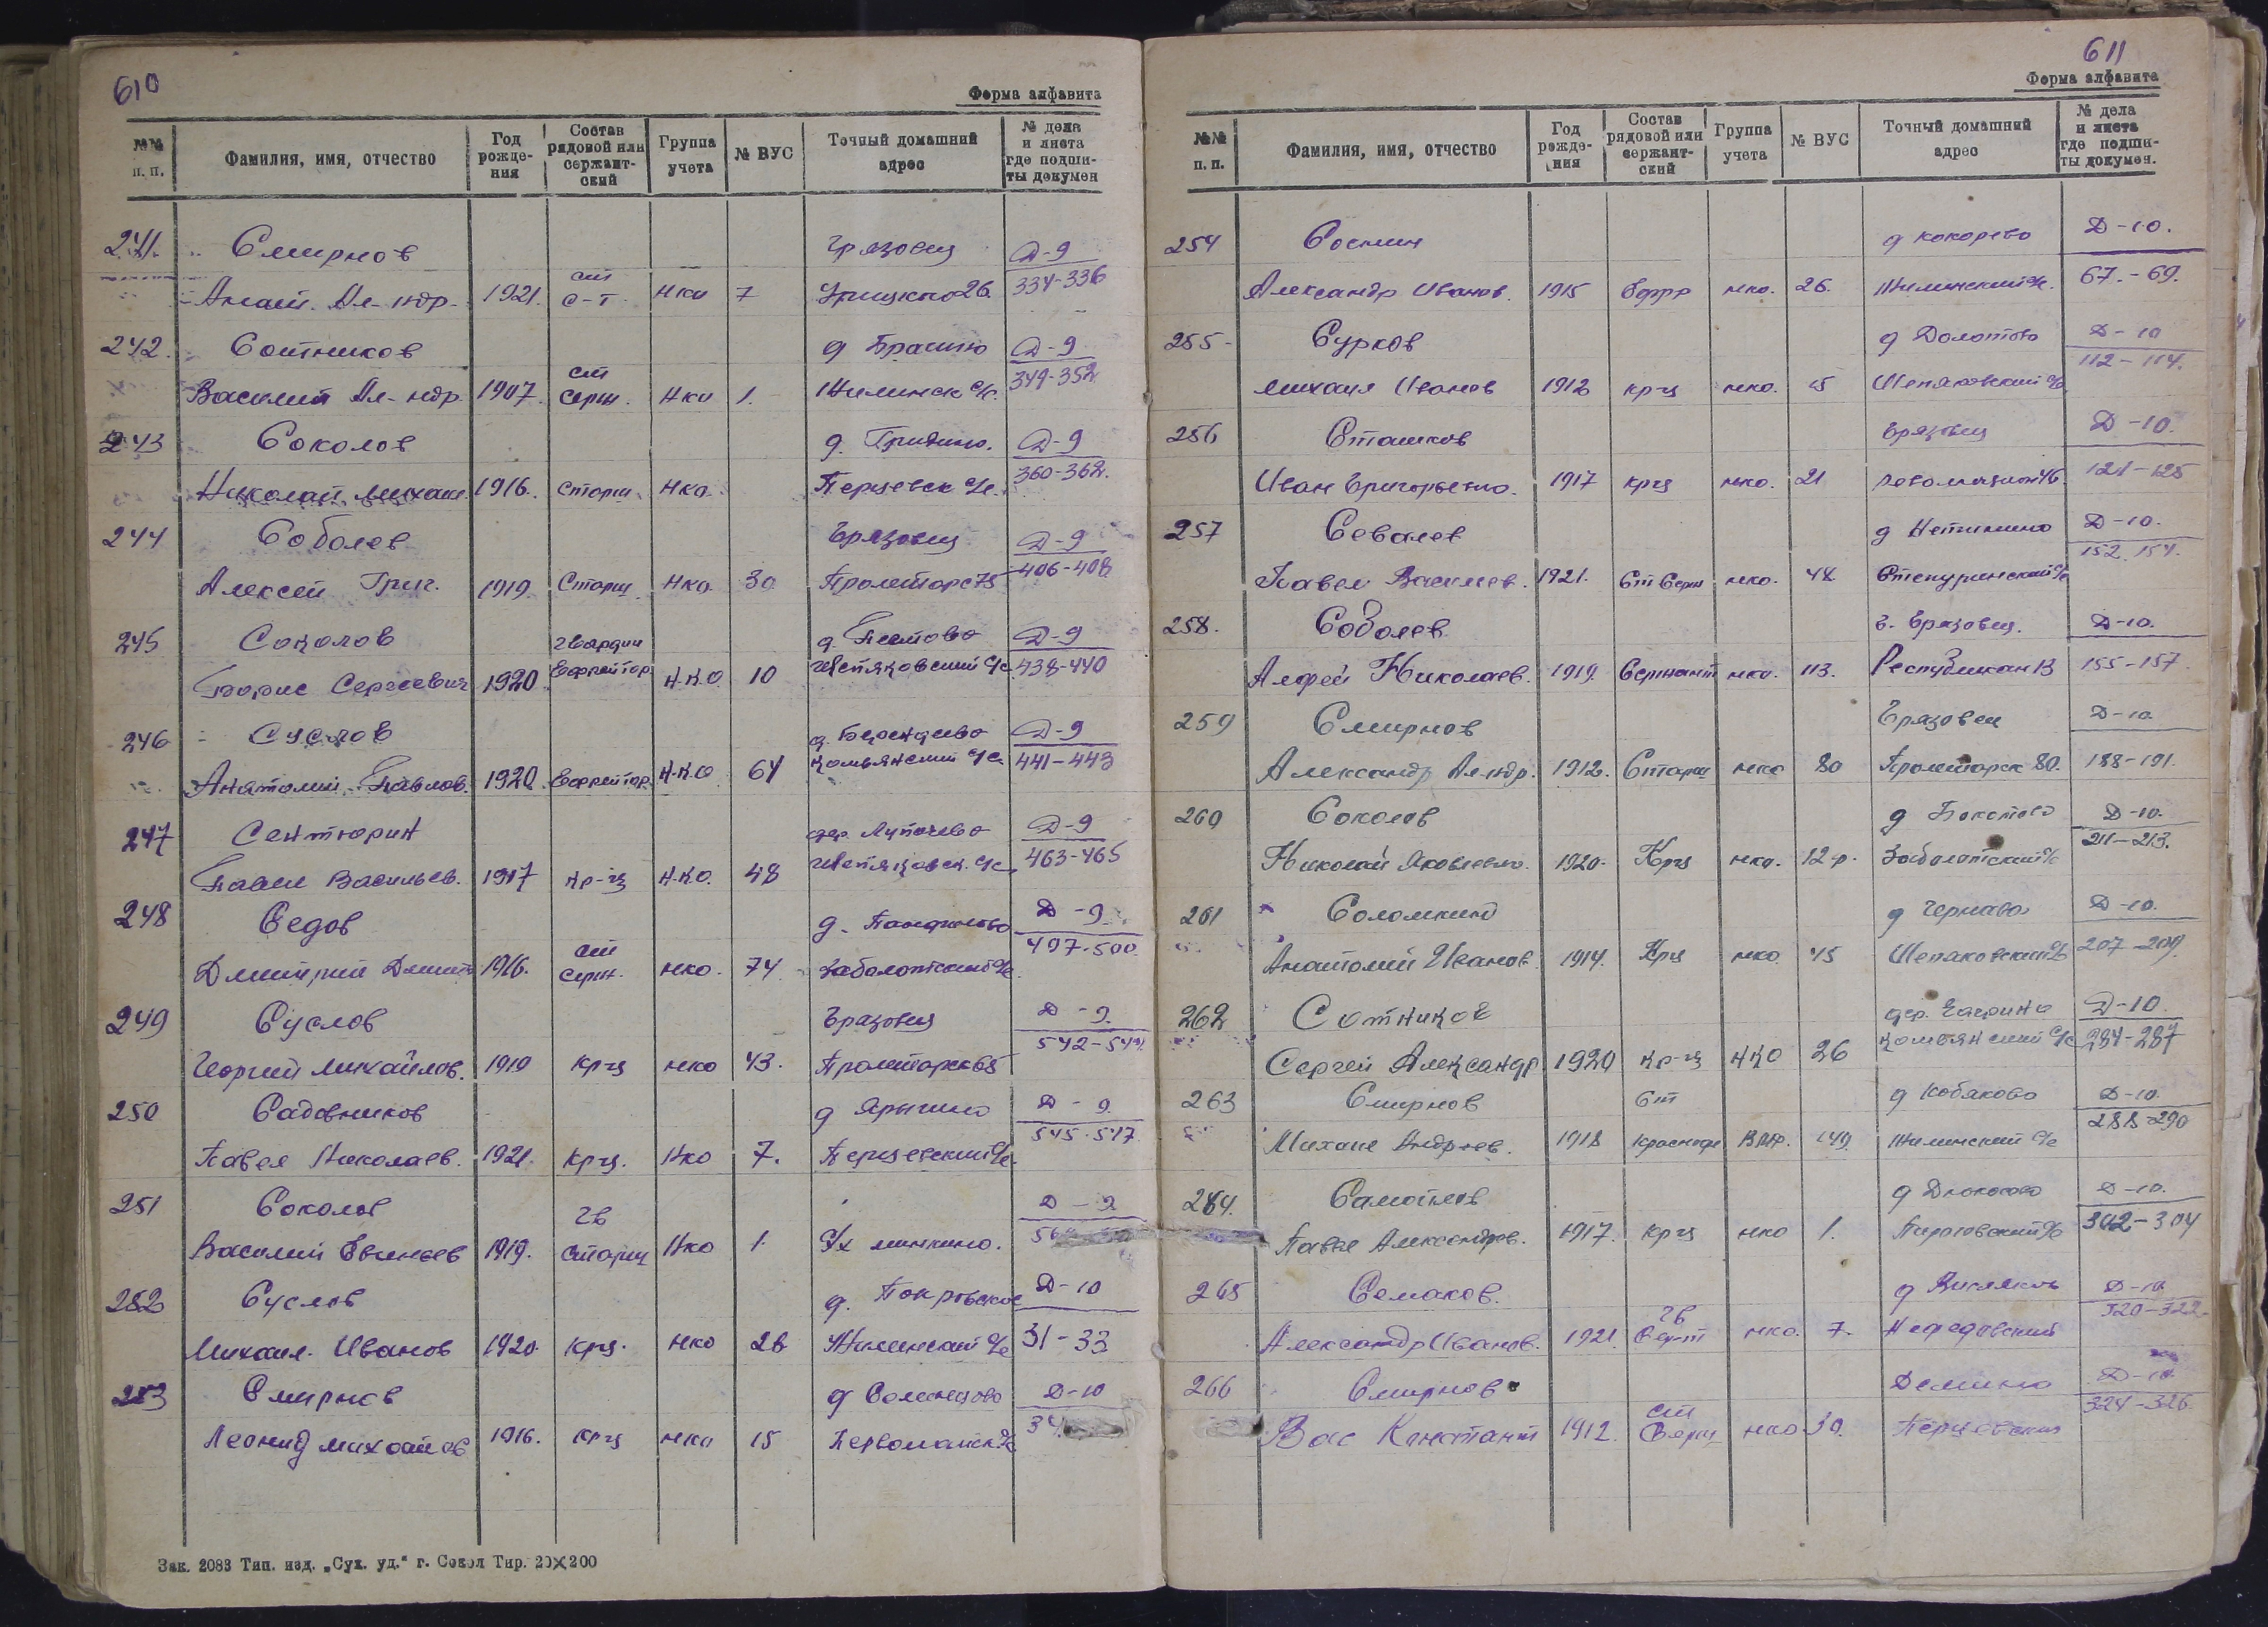 610
Форма алфавита
№№ п. п. Фамилия, имя, отчество Год рожде-ния Состав рядовой или сержант-ский Группа учета № ВУС Точный домашний адрес № дела и листа где подши-ты докумен
241. Смирнов Грязовец Д-9
Анат. Ал-ндр. 1921. ст с-т Нко 7 Урицкого 26 334-336
242. Сотников д Д-9
Василий Ал-ндр. 1907. ст серж. Нко 1. Жилинск с/с. 349-352
243 Соколов д. Гридино. Д-9
Николай Михаил. 1916. Старш. Нко. Перцевск с/с. 360-362.
244 Соболев Грязовец Д-9
Алексей Григ. 1919. Старш. Нко. 30 Пролетарс 406-408
245 Соколов гвардии д. Д-9
Борис Сергеевич 1920 Ефрейтор Н.К.О 10 с/с 438-440
246 Суслов д. Д-9
Анатолий Павлов. 1920 Ефрейтор. Н.К.О 64 Комьянский с/с. 441-443
247 Сентюрин дер. Лупачево Д-9
Павел Васильев. 1917 кр-ц Н.К.О. 48 с/с 463-465
248 Седов д. Панфилово Д-9.
Дмитрий Дмит 1916. ст серж. нко. 74. Заболотский с/с. 497-500
249 Суслов Грязовец Д-9.
Георгий Михайлов. 1919 кр-ц нко 43. Пролетарск 542-544
250 Садовников д Ярыгино Д-9.
Павел Николаев. 1921. кр-ц. Нко 7. Перцевский с/с. 545-547
251 Соколов гв Д-9
Василий Евгеньев 1919. старш Нко 1.
252 Суслов д. Покровское Д-10
Михаил. Иванов 1920. кр-ц. нко 26 Жилинский с/с 31-33
253 Смирнов д Соленцово Д-10
Леонид Михайлов 1916. кр-ц нко 15 Первомайск с/с
Зак. 2083 Тип. изд. „Сух. уд." г. Сокол Тир. 20×200
611
Форма алфавита
№№ п. п. Фамилия, имя, отчество Год рожде-ния Состав рядовой или сержант-ский Группа учета № ВУС Точный домашний адрес № дела и листа где подши-ты докумен.
254 Соснин д Кокорево Д-10.
Александр Иванов. 1915 нко. 26. Жилинский с/с. 67.-69.
255 Сурков д Долотово Д-10
Михаил Иванов 1912 кр-ц нко. 15 с/с 112-114.
256 Сташков Грязовец Д-10.
Иван Григорьевич. 1917 кр-ц нко. 21 121-125
257 Севалев д Нетинино Д-10.
Павел Васильев. 1921. Ст Серж нко. 48 с/с 152.154.
258. Соболев г. Грязовец. Д-10.
Алфей Николаев. 1919. Сержант нко. 113. Республикан 13 155-157
259 Смирнов Грязовец Д-10.
Александр Ал-ндр. 1912. Старш нко 80 Пролетарск 80. 188-191.
260 Соколов д Д-10.
Николай Яковлевич. 1920. Кр-ц нко. 12 ф. Заболотский с/с 211-213.
261 Соломкин д Чернава Д-10.
Анатолий Иванов. 1914. Кр-ц нко. 45 с/с 207-209.
262 Сотников дер. Гаврино Д-10.
Сергей Александр 1920 кр-ц НКО 26 Комьянский с/с 284-287
263 Смирнов Ст д Кобяково Д-10.
Михаил Андреев. 1918 краснофл ВМФ. 149. Жилинский с/с 288-290
264. Самойлов д Дьяконово Д-10.
Павел Александров. 1917. кр-ц нко 1. с/с 302-304
265 Семаков. гв д Д-10.
Александр Иванов. 1921 Сер-т нко. 7. Нефедовский 320-322.
266 Смирнов Демино Д-10.
Вас Константин 1912. ст Серж нко 30. Перцевский 324-326.